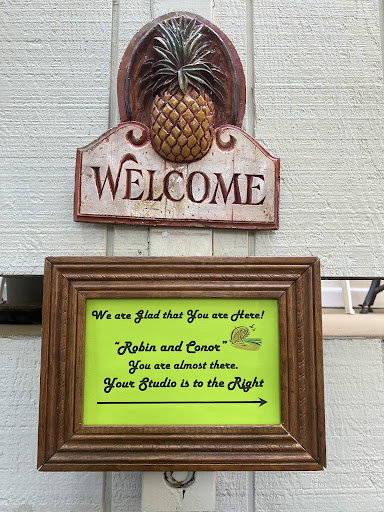 WELCOME
We are Glad that You are Here!
"Robin and Conor"
You are almost there.
Your Studio is to the Right